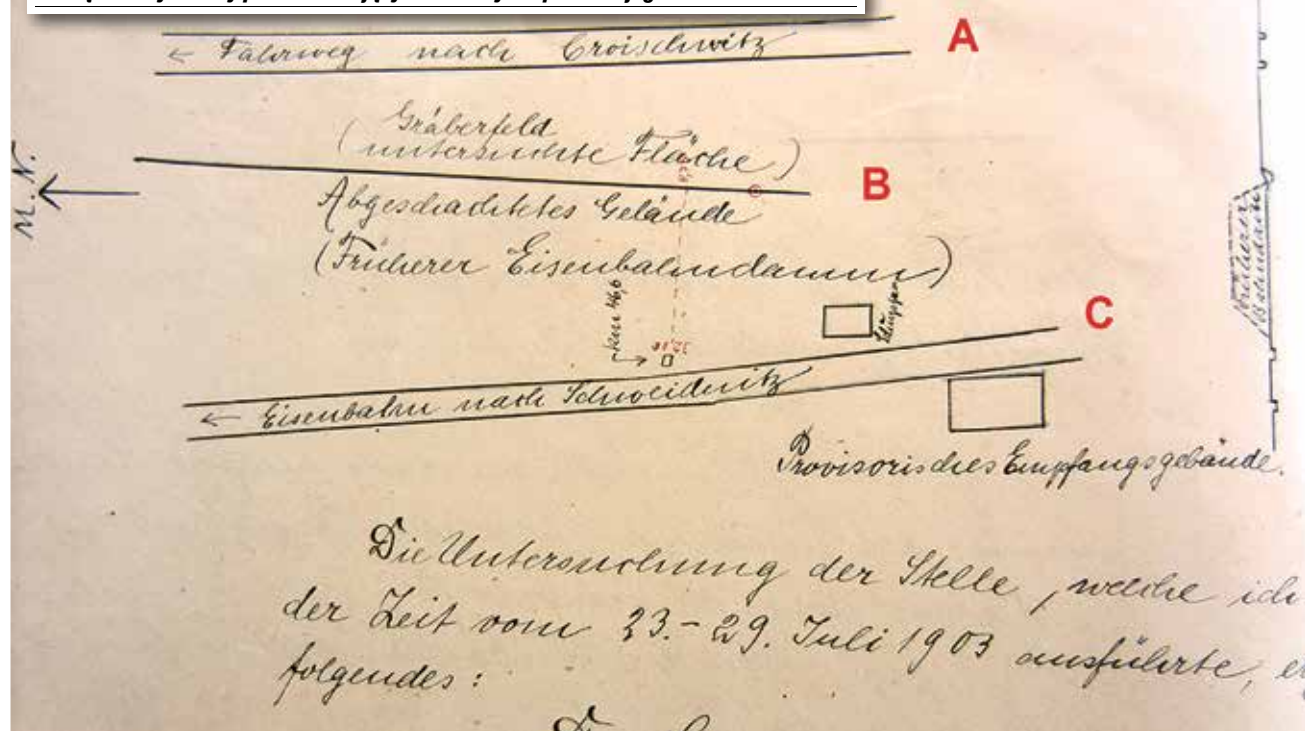 ← Fahrweg nach Croischwitz
A
(Gräberfeld
untersuchte Fläche)
M. N.
B
Abgeschachtetes Gelände
(Früherer Eisenbahndamm)
km 46,6
C
← Eisenbahn nach Schweidnitz
Provisorisches Empfangsgebäude.
Die Untersuchung der Stelle, welche ich
der Zeit vom 23.-29. Juli 1903 ausführte, er
folgendes: